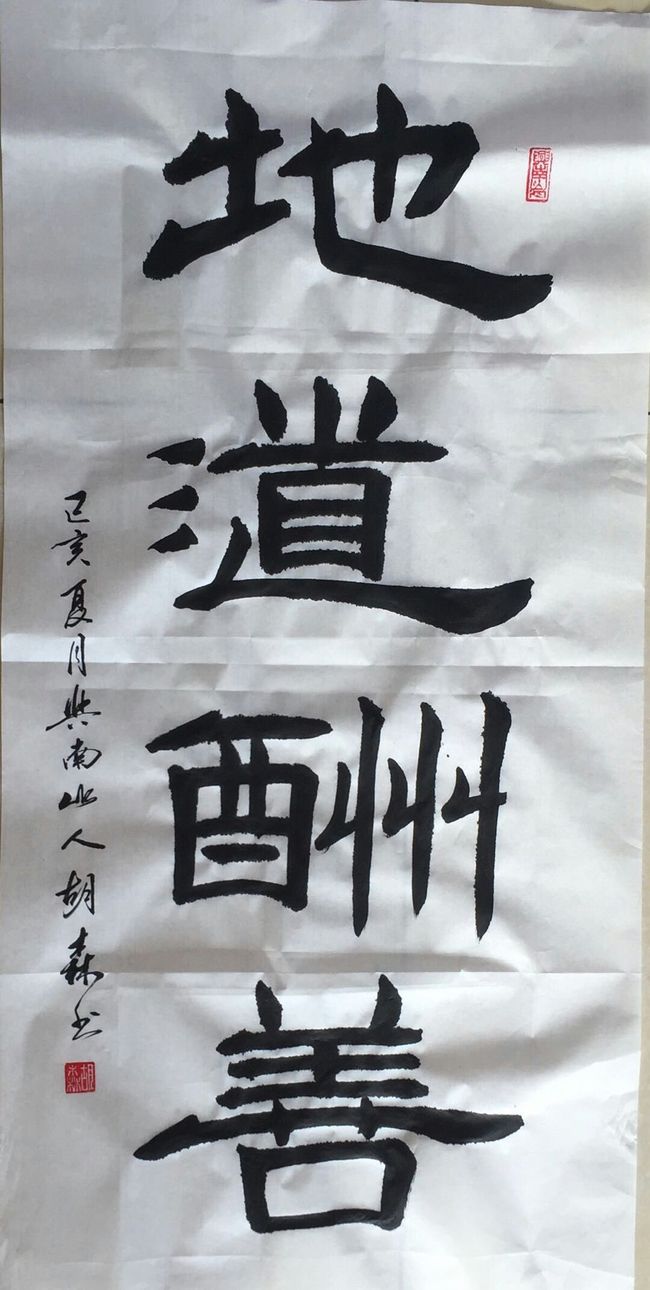 地道酬善
己亥夏月興南山人胡森书
胡森